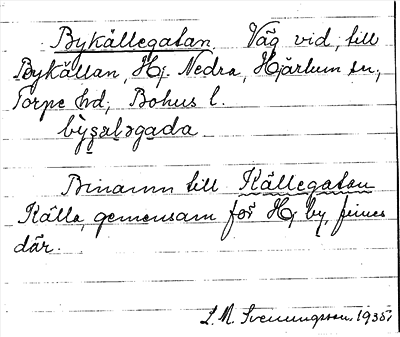 Bykällegatan. Väg vid, till
Bykällan, Hj. Nedra, Hjärtum sn,
Torpe hd, Bohus l.
Binamn till Källegatan
Källa, gemensam för Hj by, finnes
där.
S. M. Svenungsson 1935